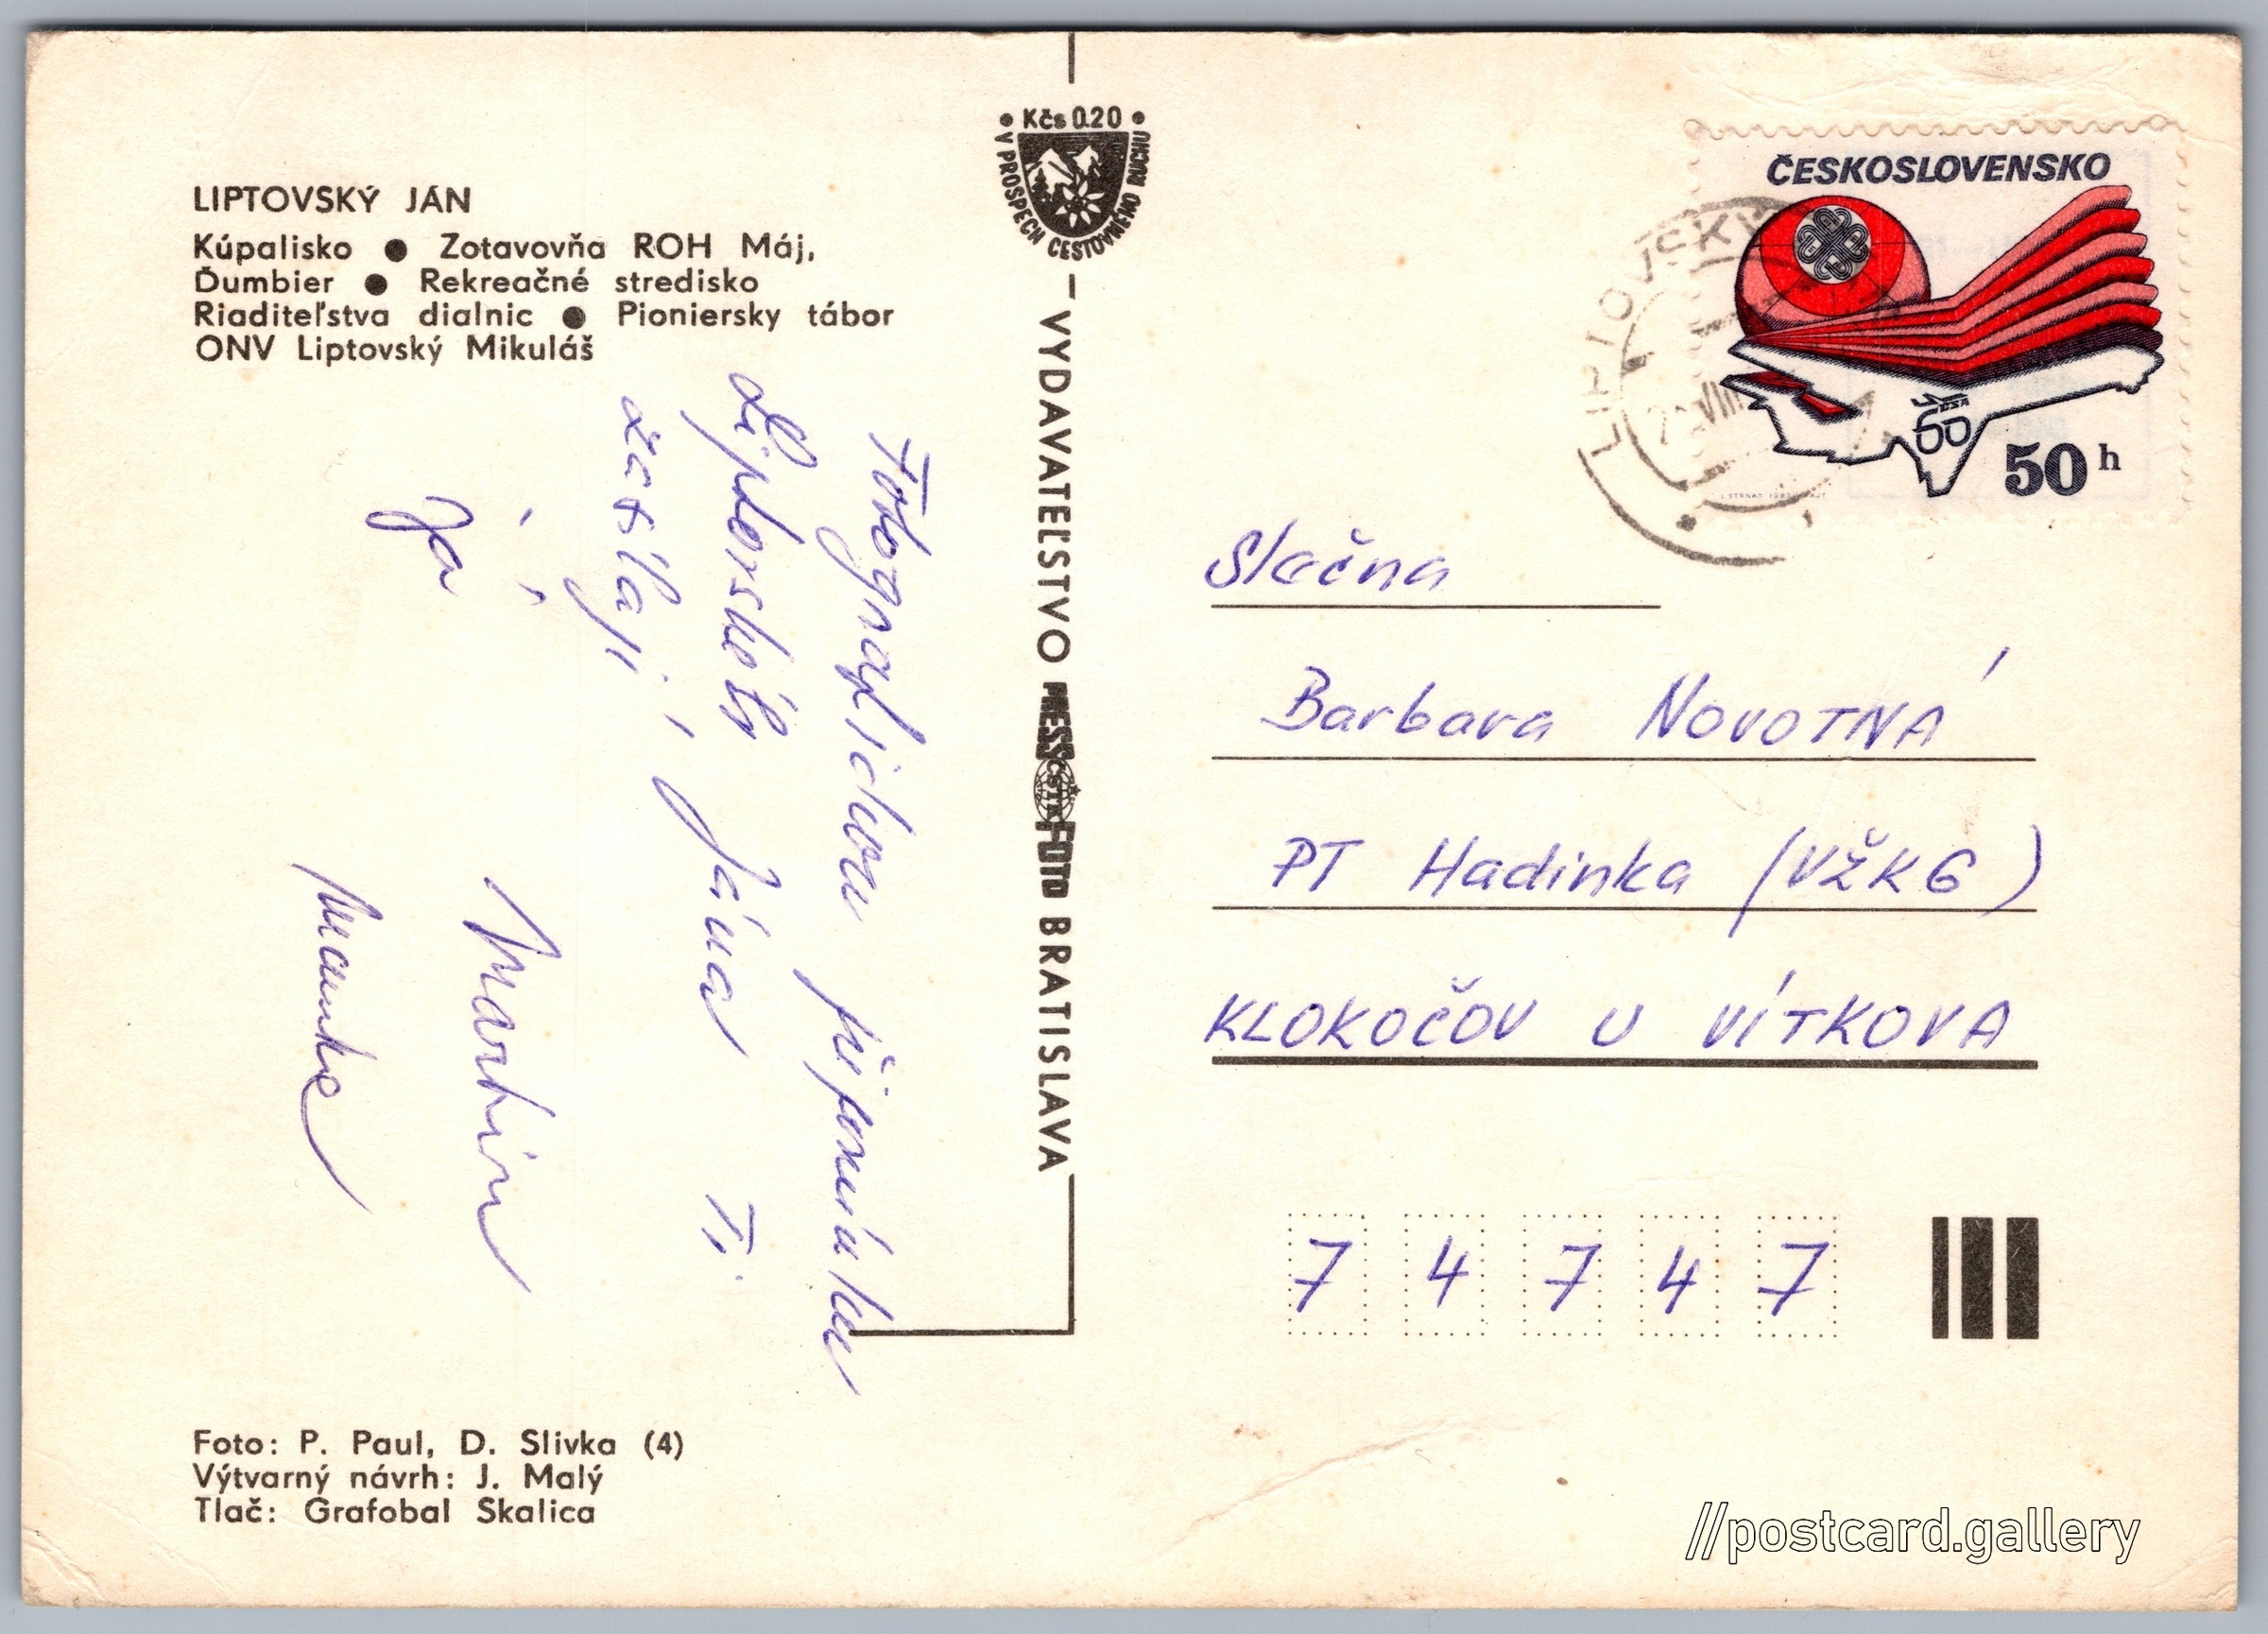 LIPTOVSKÝ JÁN
Kúpalisko ● Zotavovňa ROH Máj,
Ďumbier ● Rekreačné stredisko
Riaditeľstva dialnic ● Pioniersky tábor
ONV Liptovský Mikuláš
Fotografickou připomínku
Liptovského Jána Ti
zasílají
Ja
Martin
Mamka
Foto: P. Paul, D. Slivka (4)
Výtvarný návrh: J. Malý
Tlač: Grafobal Skalica
Kčs 0.20
V PROSPECH CESTOVNÉHO RUCHU
VYDAVATEĽSTVO PRESSFOTO BRATISLAVA
ČSTK
ČESKOSLOVENSKO
ČSA
60
50 h
LIPTOVSKÝ
VIII
Slečna
Barbara NOVOTNÁ
PT Hadinka (VŽKG)
KLOKOČOV U VÍTKOVA
7 4 7 4 7
//postcard.gallery